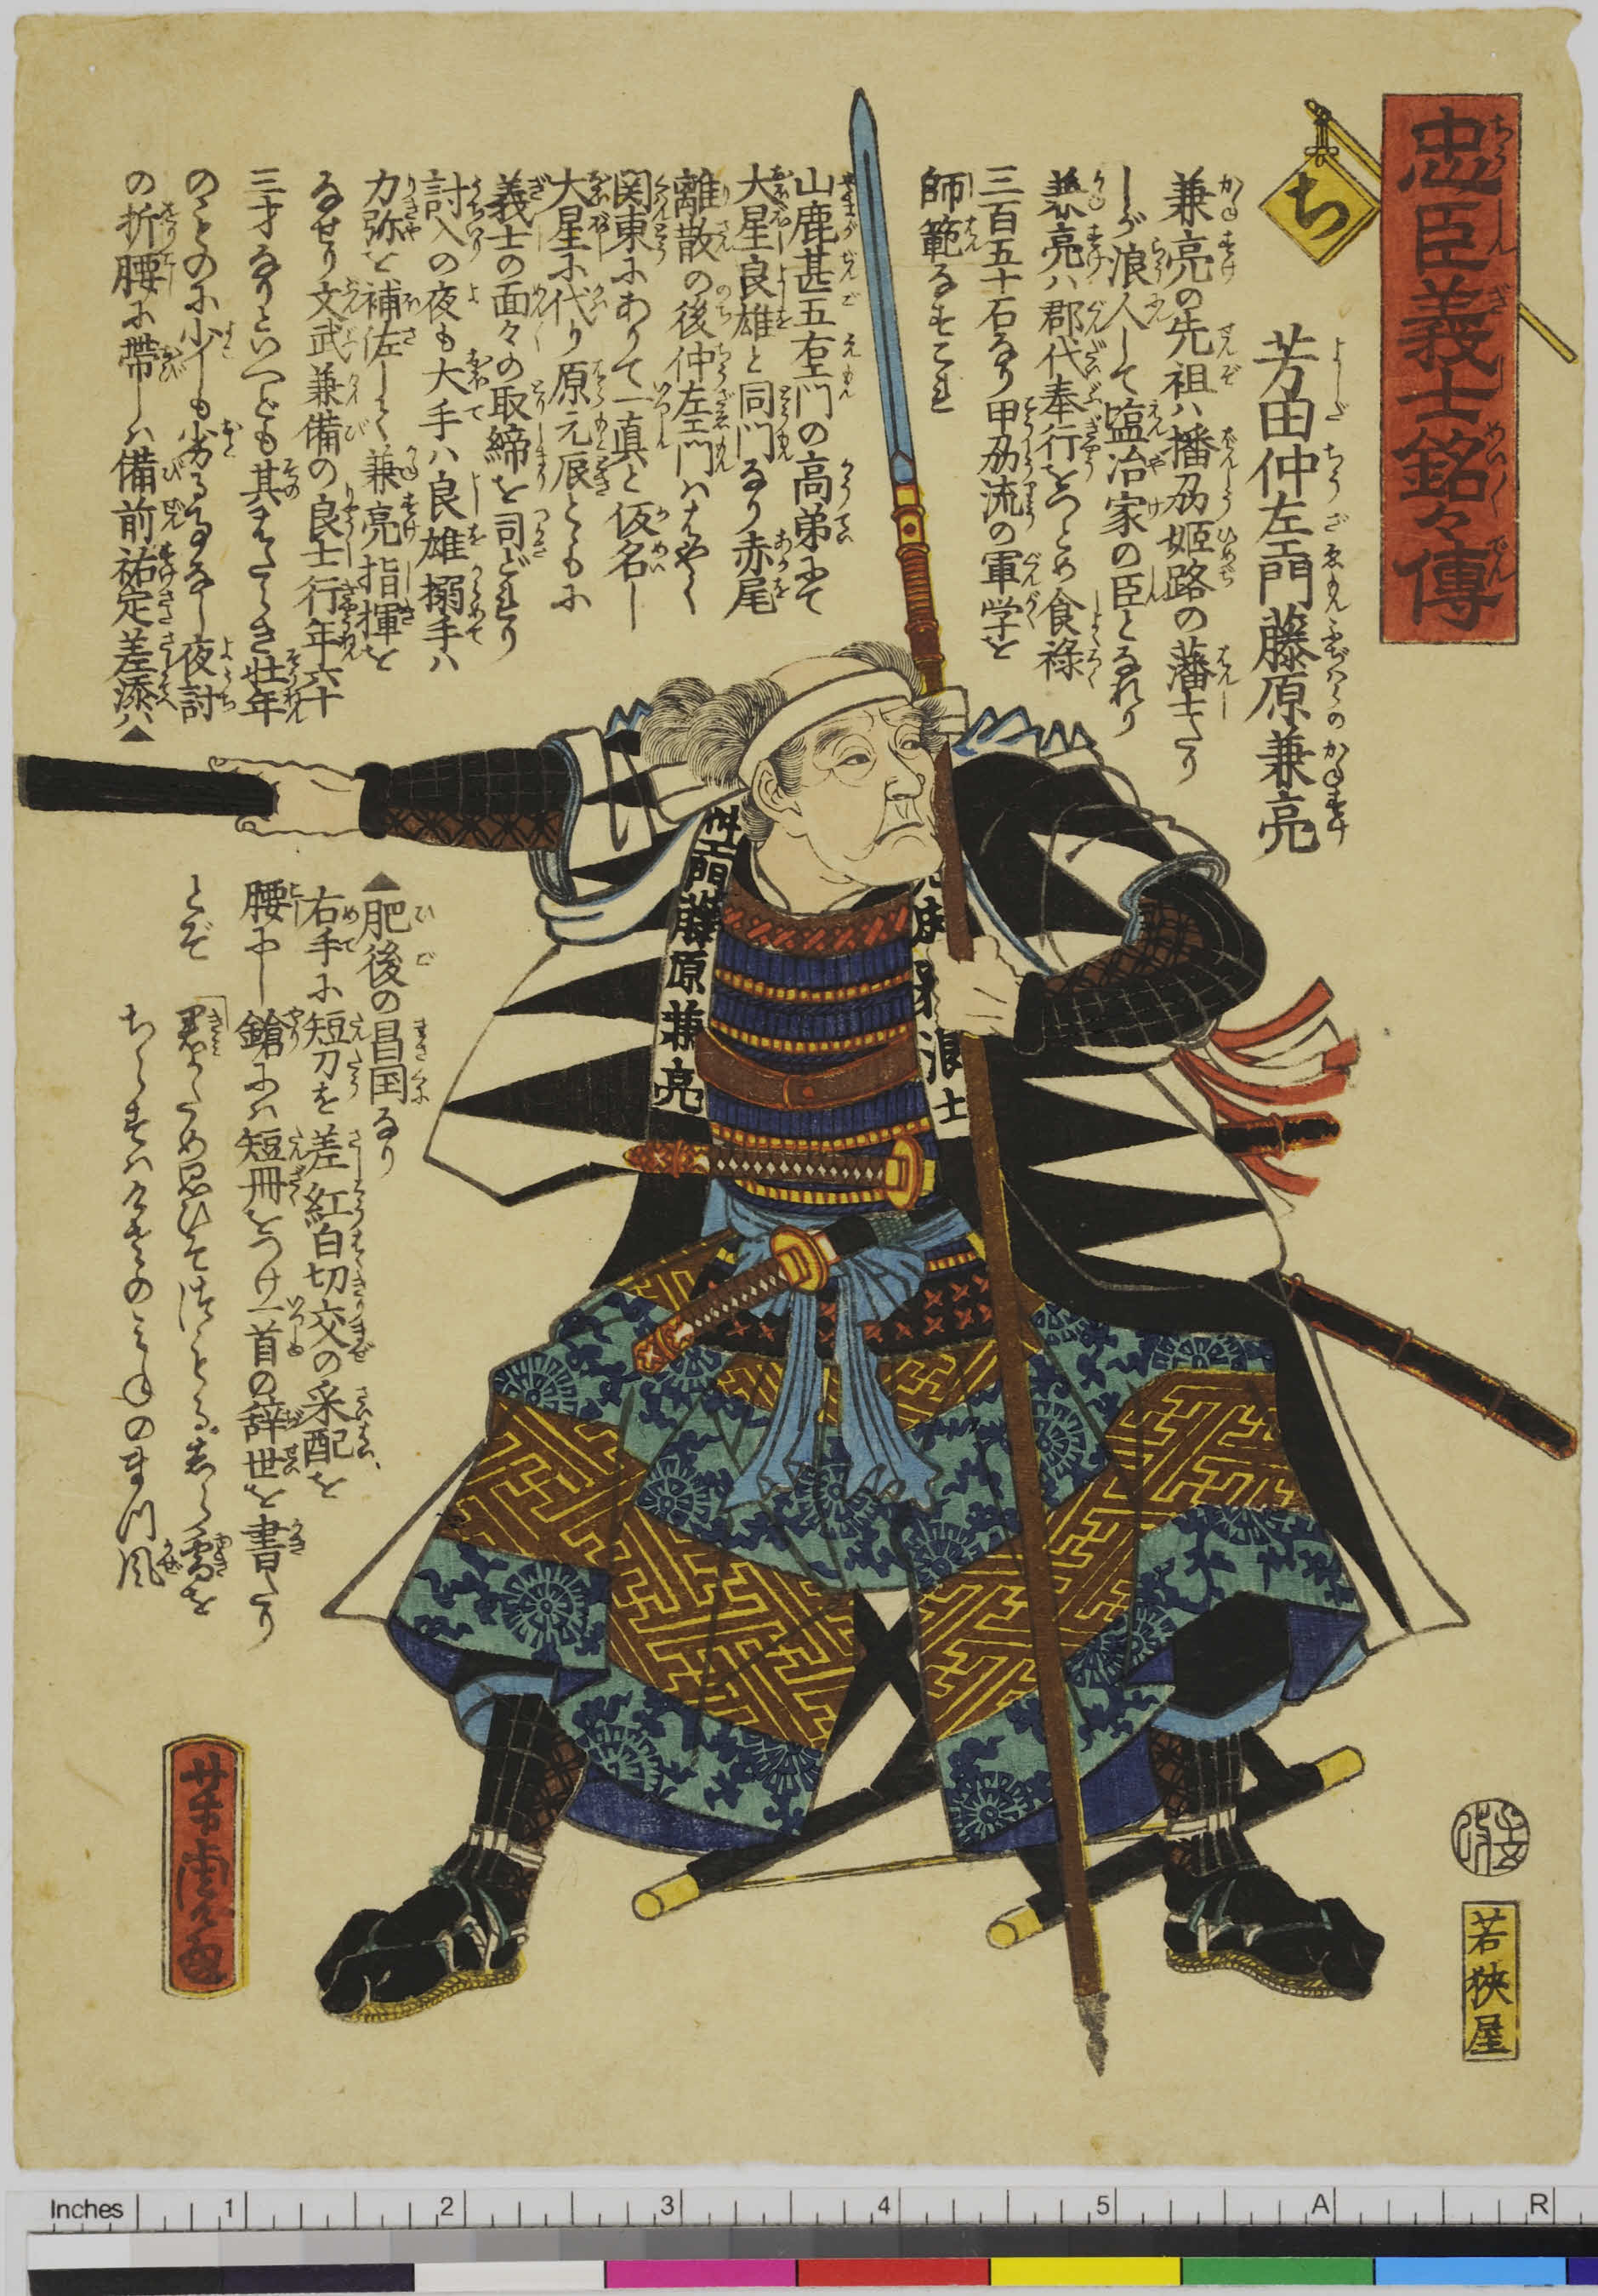 忠臣義士銘々傳
ち
芳田仲左エ門藤原兼亮
兼亮の先祖ハ播刕姫路の藩士たり
しが浪人して塩冶家の臣となれり
兼亮ハ郡代奉行をつとめ食祿
三百五十石なり甲刕流の軍学を
師範なすこれ
山鹿甚五左エ門の高弟にて
大星良雄と同門なり赤尾
離散の後仲左エ門ハはやく
関東にありて一真と仮名し
大星に代り原元辰とともに
義士の面々の取締を司どれり
討入の夜も大手ハ良雄搦手ハ
力弥を補佐して兼亮指揮を
なせり文武兼備の良士行年六十
三才なりといへども其はたらき壮年
のものに少しも劣る事なし夜討
の折腰に帯しハ備前祐定差添ハ▲
▲肥後の昌国なり
右手に短刀を差紅白切交の采配を
腰にし鎗にハ短冊をつけ一首の辞世を書たり
とぞ
君がため思ひぞ
ちらすハ
風
左エ門藤原兼亮
浪士
芳虎画
若狭屋
Inches 1 2 3 4 5 A R